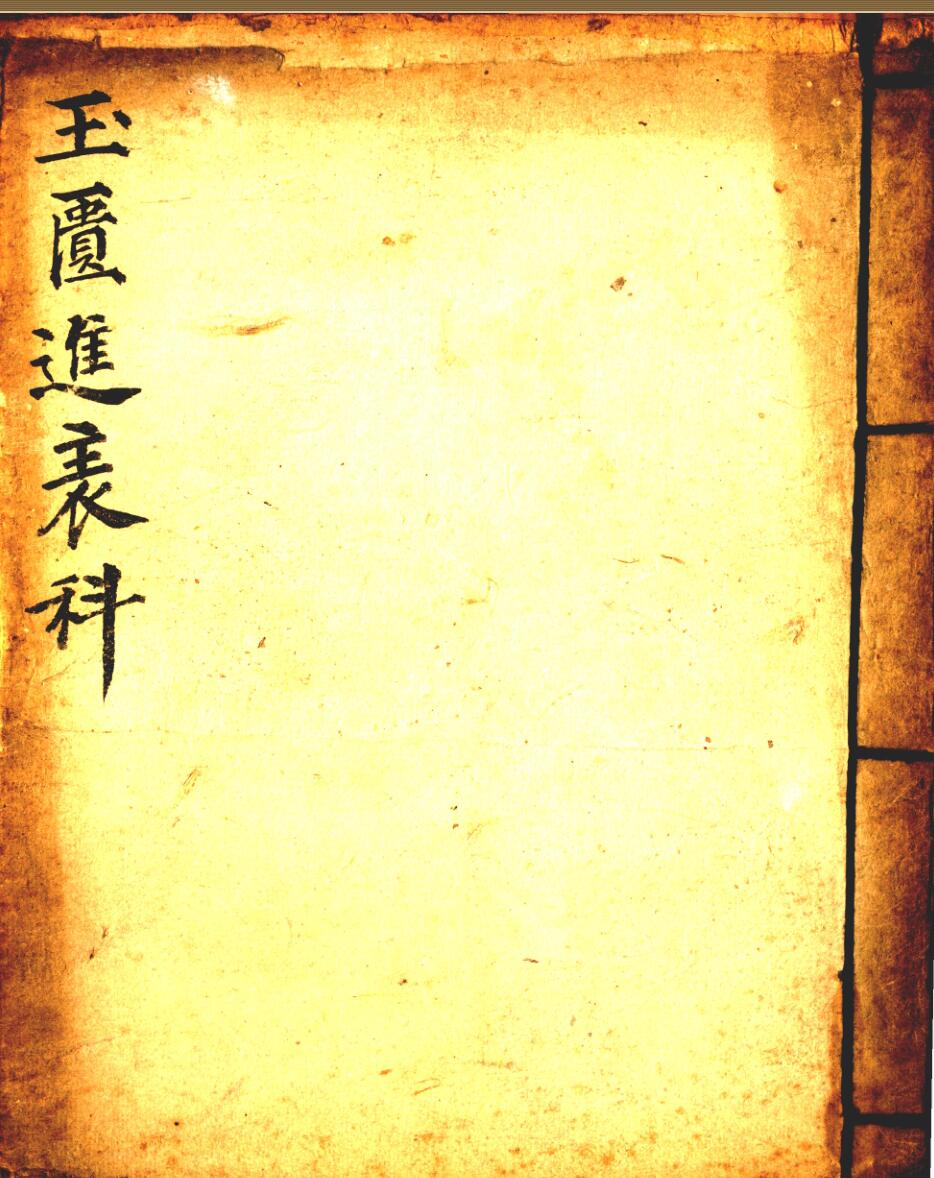 玉匱進表科